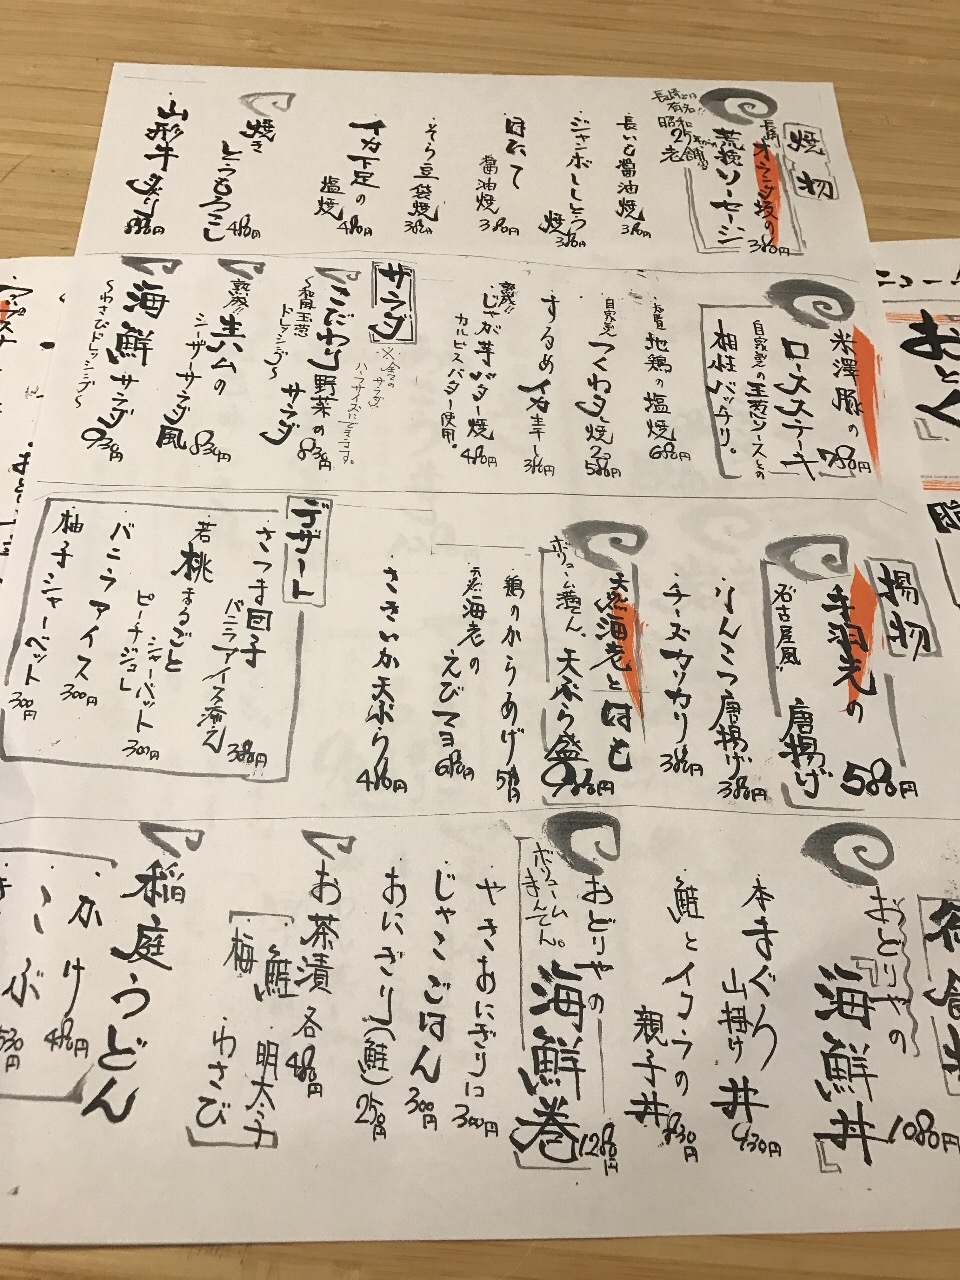 焼物
長崎 オランダ坂の
荒挽ソーセージ
380円
長崎では
有名!!
昭和
老舗の
長いも醤油焼
380円
ジャンボししとう
焼
380円
ほたて
醤油焼
380円
そら豆袋焼
380円
イカ下足の
塩焼
480円
焼き
とうもろこし
480円
山形牛炙り
米澤豚の
ロースステーキ
780円
自家製の玉葱ソースとの
相性バッチリ。
地鶏の塩焼
680円
自家製
つくね焼
2コ
580円
するめイカ生干し
380円
熟成!!
じゃが芋バター焼
カルピスバター使用。
480円
サラダ
※全ての
サラダ
ハーフサイズにできます。
こだわり野菜の
サラダ
830円
〜和風玉葱
ドレッシング〜
熟成!!
生ハムの
シーザーサラダ風
830円
海鮮サラダ
930円
〜わさびドレッシング〜
揚物
手羽先の
唐揚げ
580円
名古屋風!!
なんこつ唐揚げ
380円
チーズカリカリ
380円
天然海老とはも
天ぷら盛
980円
ボリューム満てん。
鶏のからあげ
天然海老の
えびマヨ
680円
さきいか天ぷら
480円
デザート
さつま団子
バニラアイス添え
380円
若桃まるごと
ピーチジュレ
シャーベット
300円
バニラアイス
300円
柚子シャーベット
300円
おどりやの
海鮮丼
1080円
本まぐろ
山掛け丼
930円
鮭とイクラの
親子丼
830円
おどりやの
海鮮巻
1280円
ボリューム
まんてん。
やきおにぎり
300円
じゃこごはん
300円
おにぎり(鮭)
250円
お茶漬
各480円
梅
鮭
明太子
わさび
稲庭うどん
かけ
480円
こぶ
530円